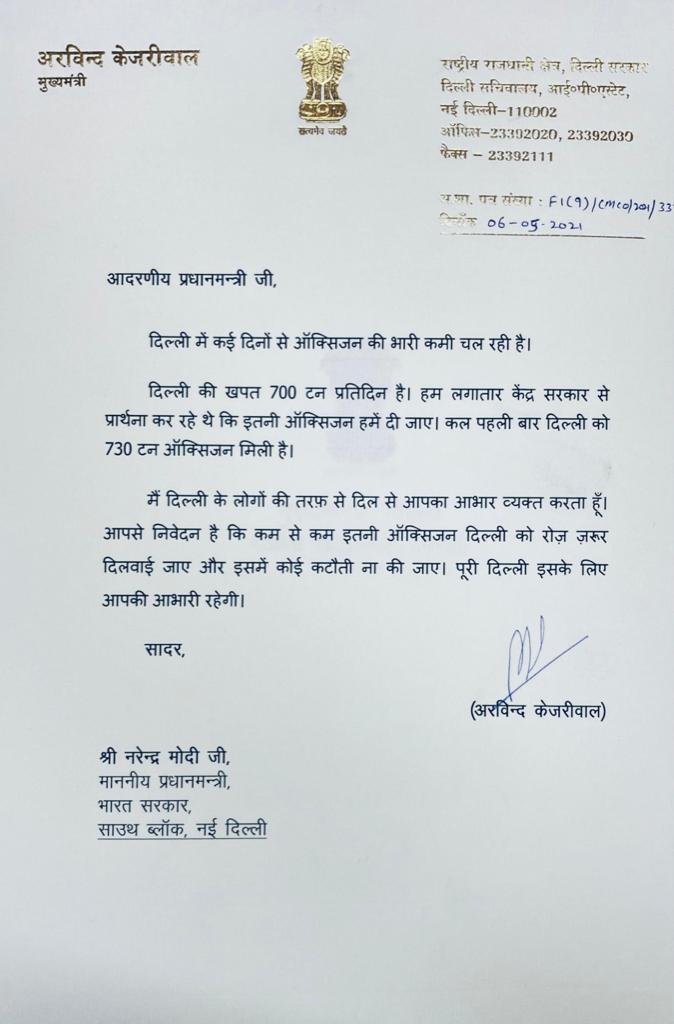 अरविन्द केजरीवाल
मुख्यमंत्री
सत्यमेव जयते
राष्ट्रीय राजधानी क्षेत्र, दिल्ली सरकार
दिल्ली सचिवालय, आई०पी०एस्टेट,
नई दिल्ली–110002
ऑफिस–23392020, 23392030
फैक्स – 23392111
अ.शा. पत्र संख्या : F1(9)/CMCO/2021/33
दिनाँक 06-05-2021
आदरणीय प्रधानमन्त्री जी,
दिल्ली में कई दिनों से ऑक्सिजन की भारी कमी चल रही है।
दिल्ली की खपत 700 टन प्रतिदिन है। हम लगातार केंद्र सरकार से
प्रार्थना कर रहे थे कि इतनी ऑक्सिजन हमें दी जाए। कल पहली बार दिल्ली को
730 टन ऑक्सिजन मिली है।
मैं दिल्ली के लोगों की तरफ़ से दिल से आपका आभार व्यक्त करता हूँ।
आपसे निवेदन है कि कम से कम इतनी ऑक्सिजन दिल्ली को रोज़ ज़रूर
दिलवाई जाए और इसमें कोई कटौती ना की जाए। पूरी दिल्ली इसके लिए
आपकी आभारी रहेगी।
सादर,
(अरविन्द केजरीवाल)
श्री नरेन्द्र मोदी जी,
माननीय प्रधानमन्त्री,
भारत सरकार,
साउथ ब्लॉक, नई दिल्ली